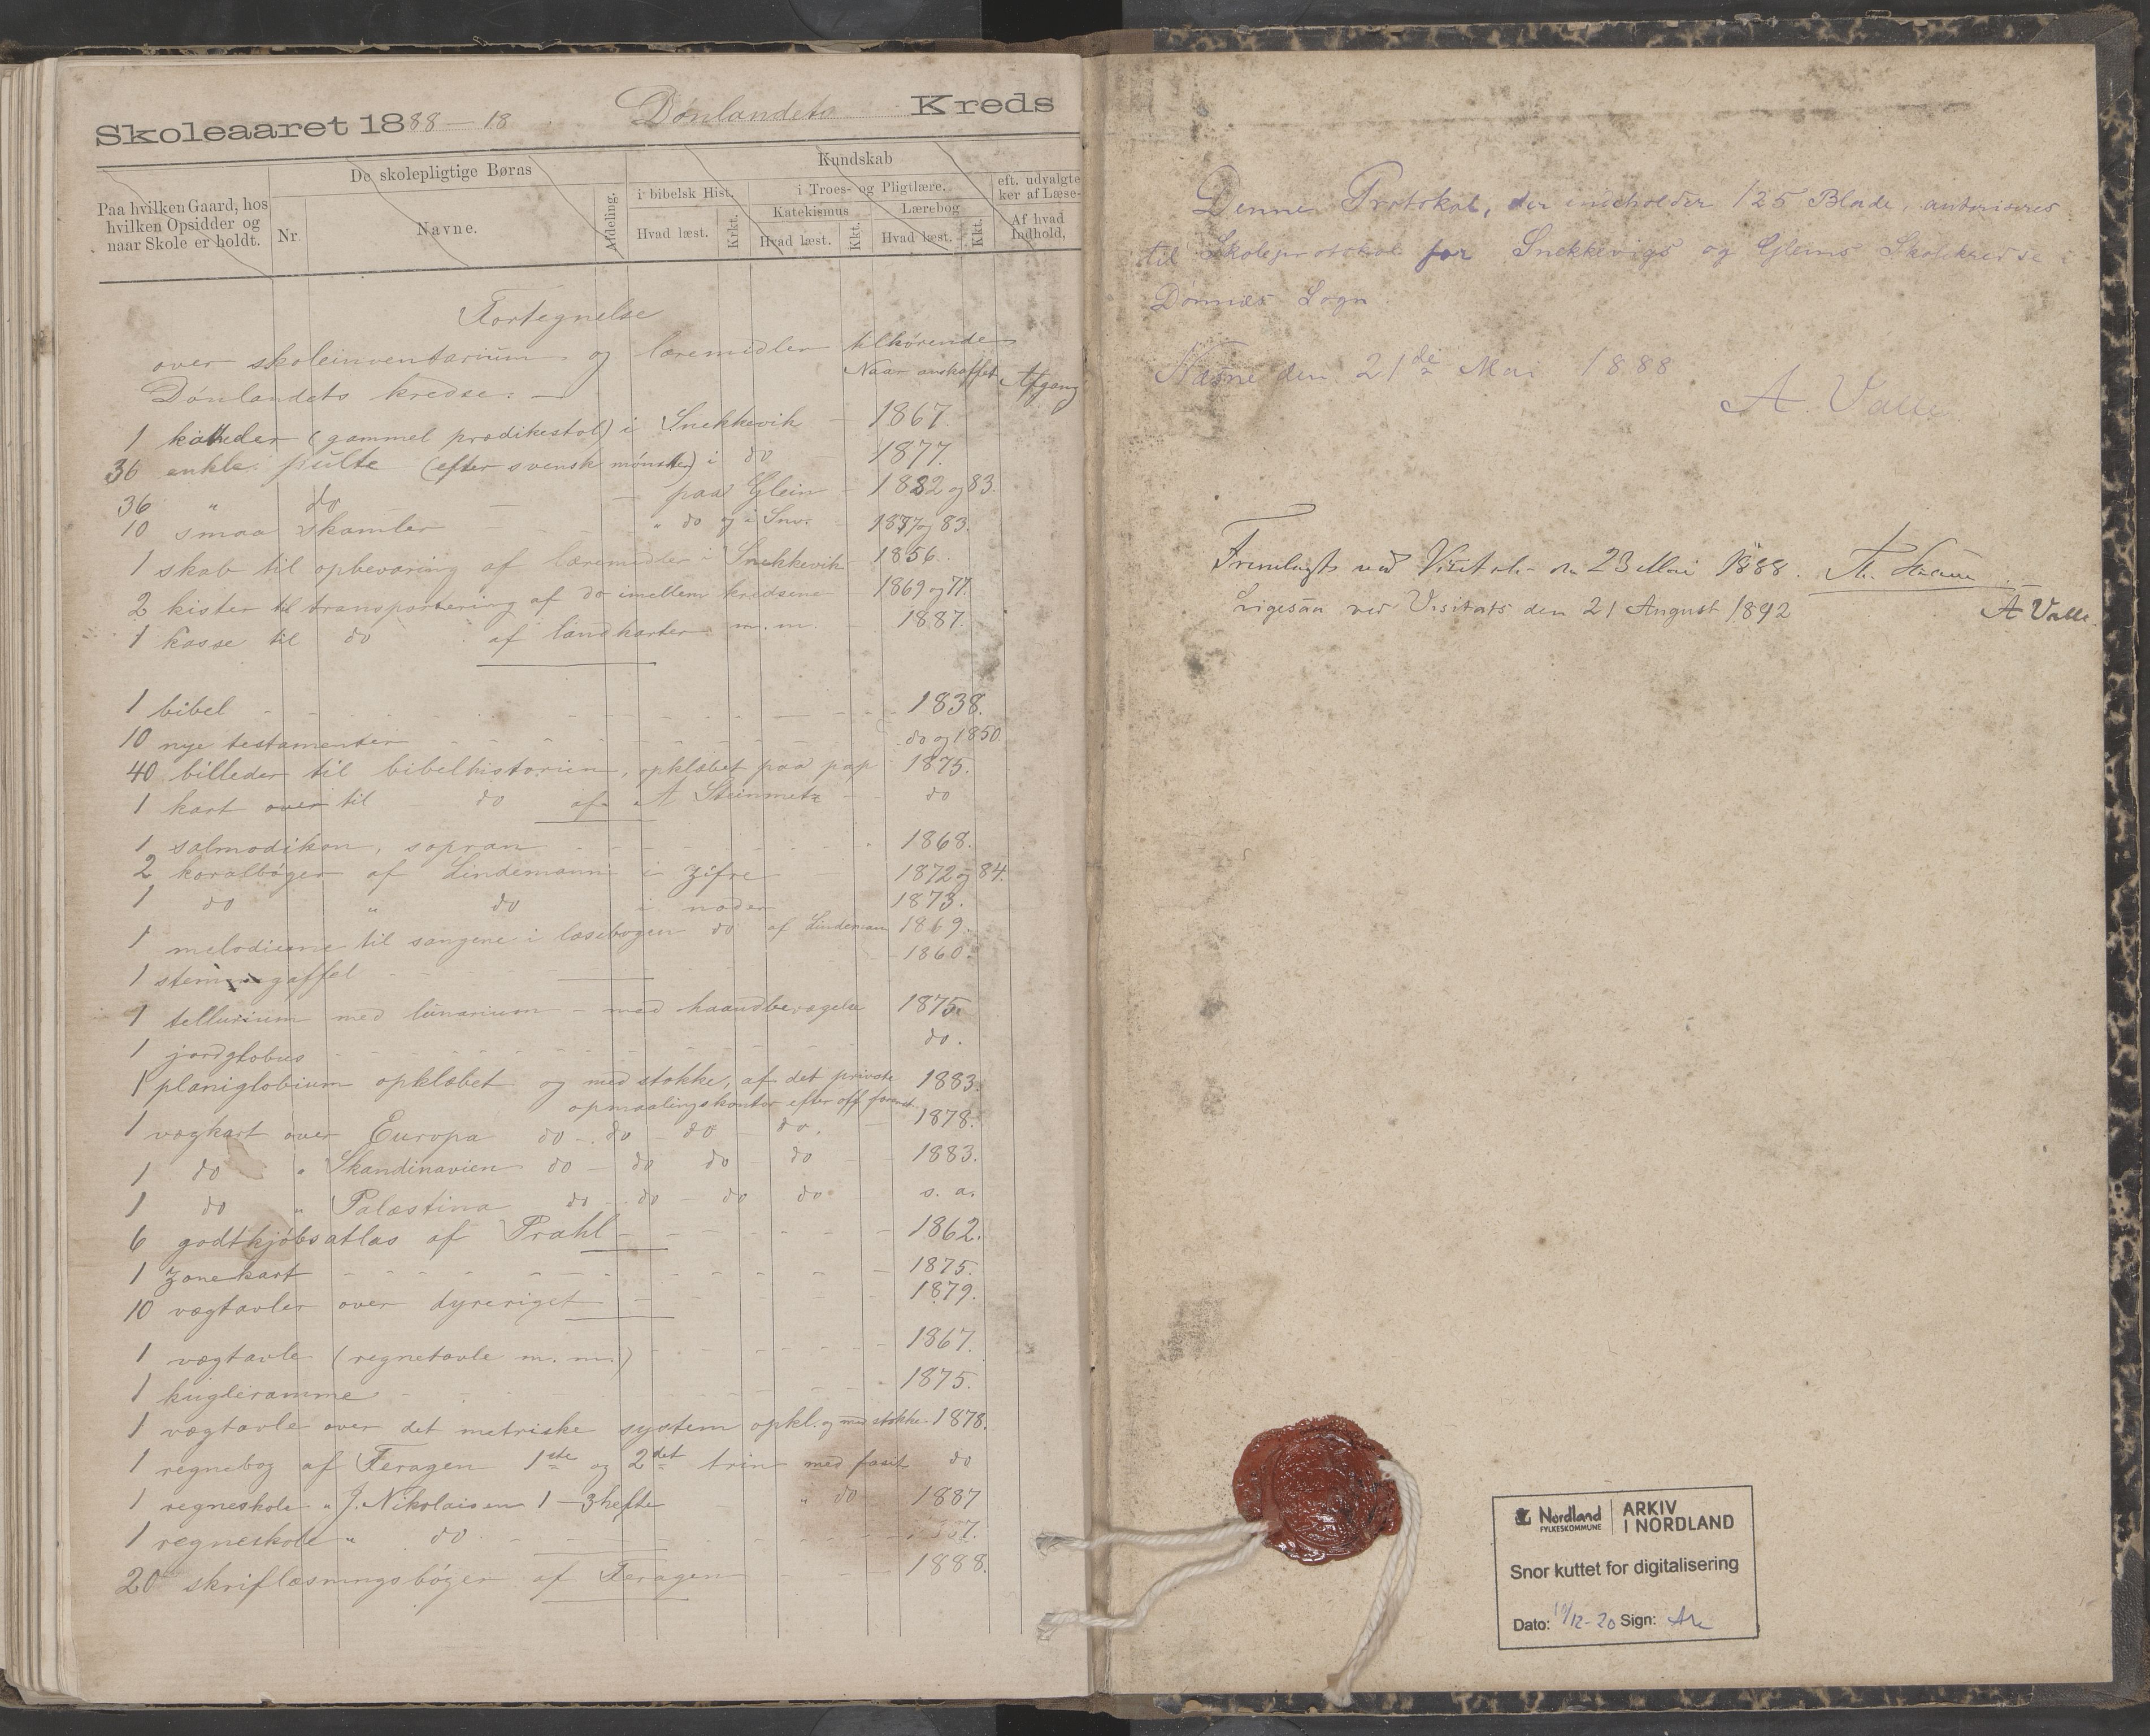 Skoleaaret 1888 — 18 Dønlandets Kreds
De skolepligtige Børns
Kundskab
Paa hvilken Gaard, hos
hvilken Opsidder og
naar Skole er holdt.
Nr.
Navne.
Afdeling.
i bibelsk Hist.
Hvad læst.
Krkt.
i Troes- og Pligtlære.
Katekismus
Hvad læst.
Kkt.
Lærebog
Hvad læst.
Kkt.
eft. udvalgte
ker af Læse-
Af hvad
Indhold,
Fortegnelse
over skoleinventarium og læremidler tilhørende
Dønlandets kredse: — Naar anskaffet Afgang
1 katheder (gammel prædikestol) i Snekkevik — 1867.
36 enkle pulte (efter svensk mønster) i do 1877.
36 " do — — paa Glein — 1882 og 83.
10 smaa skamler " do og i Snv. 1877 og 83.
1 skab til opbevaring af læremidler i Snekkevik 1856.
2 kister til transportering af do imellem kredsene 1869 og 77.
1 kasse til do af landkarter m.m. 1887.
1 bibel 1838.
10 nye testamenter do og 1850
40 billeder til bibelhistorien, opklæbet paa pap 1875.
1 kart over til do af A Steinmetz do
1 salmodikon, sopran 1868.
2 koralbøger af Lindemann i zifre 1872 og 84.
1 do " do i noder 1873.
1 melodierne til sangene i læsebogen do af Lindeman 1869.
1 stemmegaffel 1860.
1 tellurium med lunarium — med haandbevægelse 1875.
1 jordglobus do.
1 planiglobium opklæbet og med stokke, af det private 1883.
opmaalingskontor efter off. foranst.
1 vægkart over Europa do — do — do — do. 1878.
1 do " Skandinavien do — do do — do 1883.
1 do " Palæstina do — do — do do s. a.
6 godtkjøbsatlas af Prahl 1862.
1 zonekart 1875.
10 vægtavler over dyreriget 1879.
1 vægtavle (regnetavle m. m.) 1867.
1 kugleramme 1875.
1 vægtavle over det metriske system opkl. og med stokke 1878.
1 regnebog af Feragen 1ste og 2det trin med fasit do
1 regneskole " J. Nikolaisen 1 — 3 hefte " do 1887
1 regneskole " do
20 skriflæsningsbøger af Feragen 1888.
Denne Protokol, der indeholder 125 Blade, autoriseres
til Skoleprotokol for Snekkevigs og Gleins Skolekredse i
Dønnes Sogn.
Næsne den 21de Mai 1888
A. Valle
Fremlagt ved Visitats den 23 Mai 1888.
Ligesaa ved Visitats den 21 August 1892 A Valle.
Nordland
FYLKESKOMMUNE
ARKIV
I NORDLAND
Snor kuttet for digitalisering
Dato: 10/12-20 Sign: